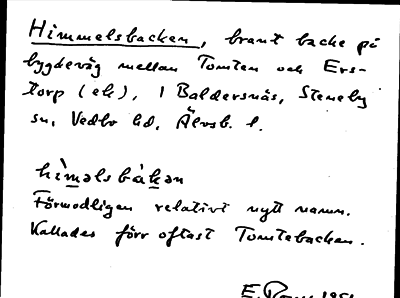 Himmelsbacken, brant backe på
bygdeväg mellan Tomten och Ers-
torp (ek), i Baldersnäs, Steneby
sn, Vedbo hd, Älvsb. l.
hìməlsbàkən
Förmodligen relativt nytt namn.
Kallades förr oftast Tomtebacken.
E.